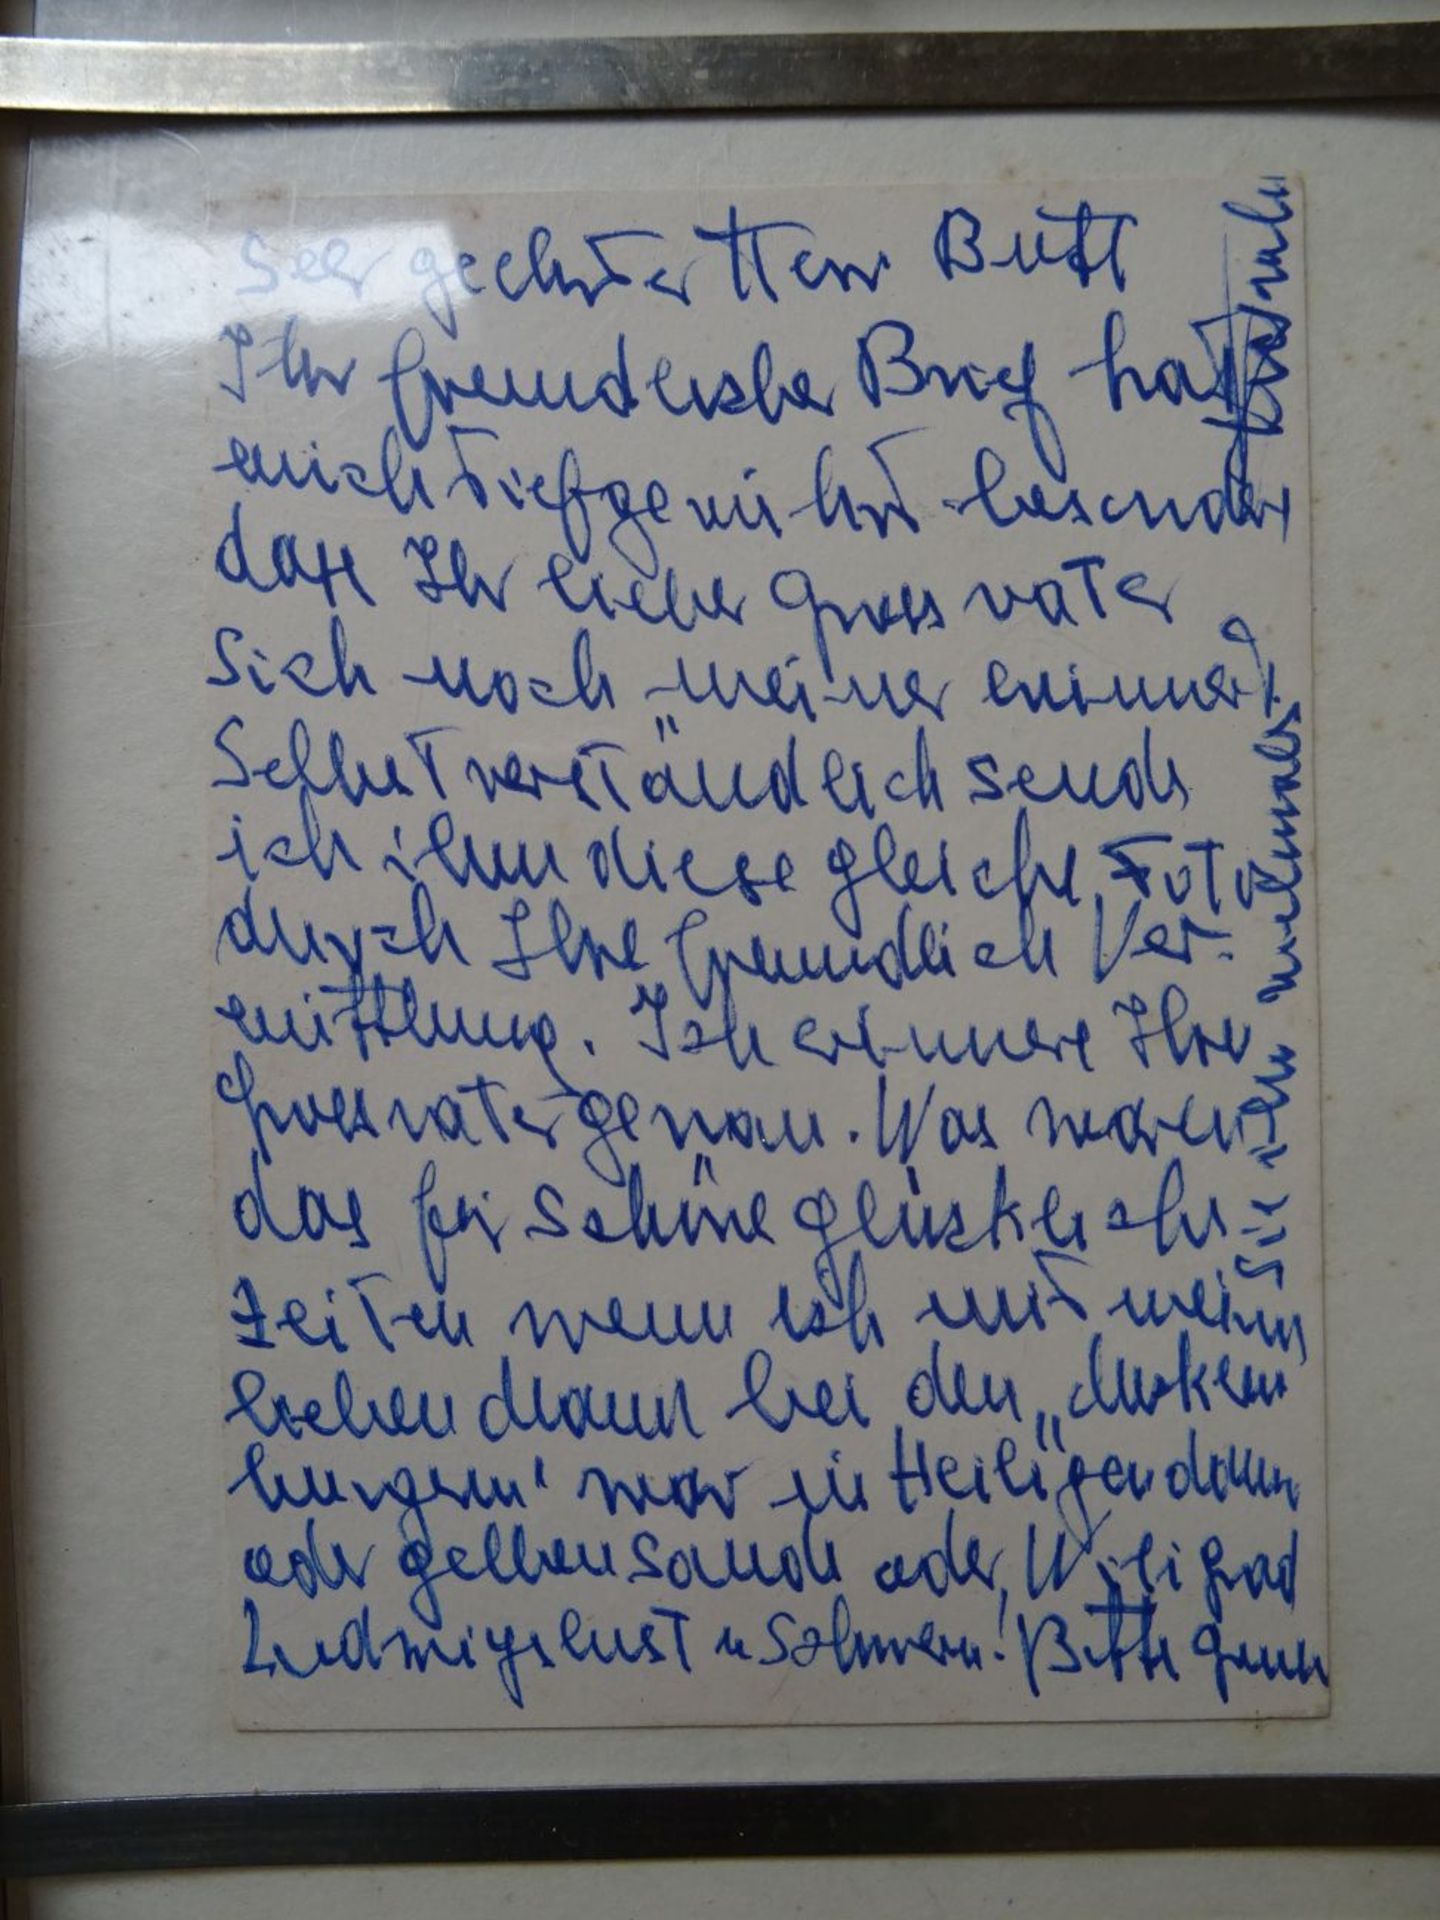 Seer geehrter Herr Butt
Ihr freundlicher Brief hat
mich tief gerührt besonders
dass Ihr lieber Grossvater
sich noch meiner erinnert
Selbstverständlich sende
ich ihm diese gleiche Foto
durch Ihre freundlich Ver-
mittlung. Ich erinnere Ihre
Grossvater genau. Was waren
das für schöne glückliche
Zeiten wenn ich mit meinem
lieben Mann bei den „Meklen
burgern" war in Heiligendamm
oder Gelbensande oder Wiligrad
Ludwigslust u Schwerin! Bitte
Sie ihn vielmals